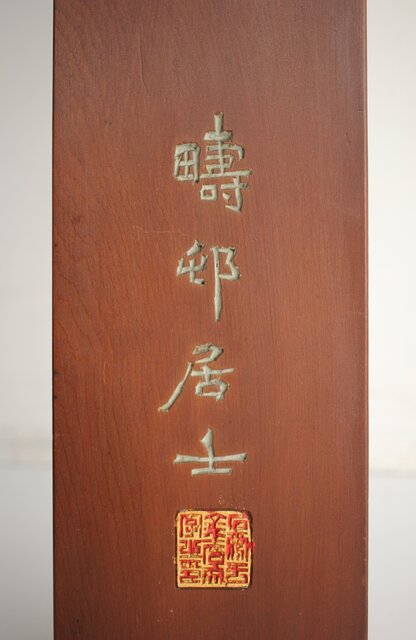 疇邨居士